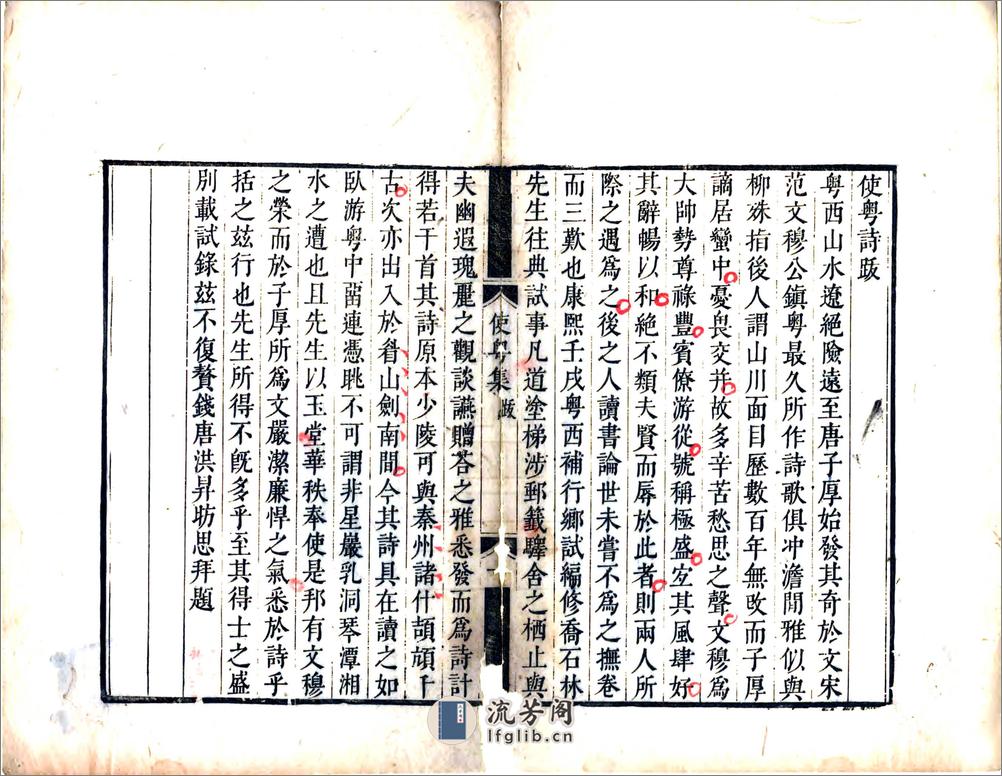 使粤詩跋
粤西山水遼絕險遠至唐子厚始發其奇於文宋
范文穆公鎮粤最久所作詩歌俱冲澹閒雅似與
柳殊指後人謂山川面目歷數百年無改而子厚
謫居蠻中憂畏交并故多辛苦愁思之聲文穆爲
大帥勢尊祿豐賓僚游從號稱極盛宐其風肆好
其辭暢以和絕不類夫賢而辱於此者則兩人所
際之遇爲之後之人讀書論世未嘗不爲之撫卷
而三歎也康熙壬戌粤西補行鄉試編修喬石林
先生往典試事凡道塗梯涉郵籖驛舍之栖止與
夫幽遐瑰麗之觀談讌贈荅之雅悉發而爲詩計
得若干首其詩原本少陵可與秦州諸什頡頏千
古次亦出入於眉山劍南間今其詩具在讀之如
臥游粤中畱連憑眺不可謂非星巖乳洞琴潭湘
水之遭也且先生以玉堂華秩奉使是邦有文穆
之榮而於子厚所爲文嚴潔廉悍之氣悉於詩乎
括之兹行也先生所得不旣多乎至其得士之盛
別載試錄兹不復贅錢唐洪昇昉思拜題
使粤集 跋
一
流芳阁
lfglib.cn